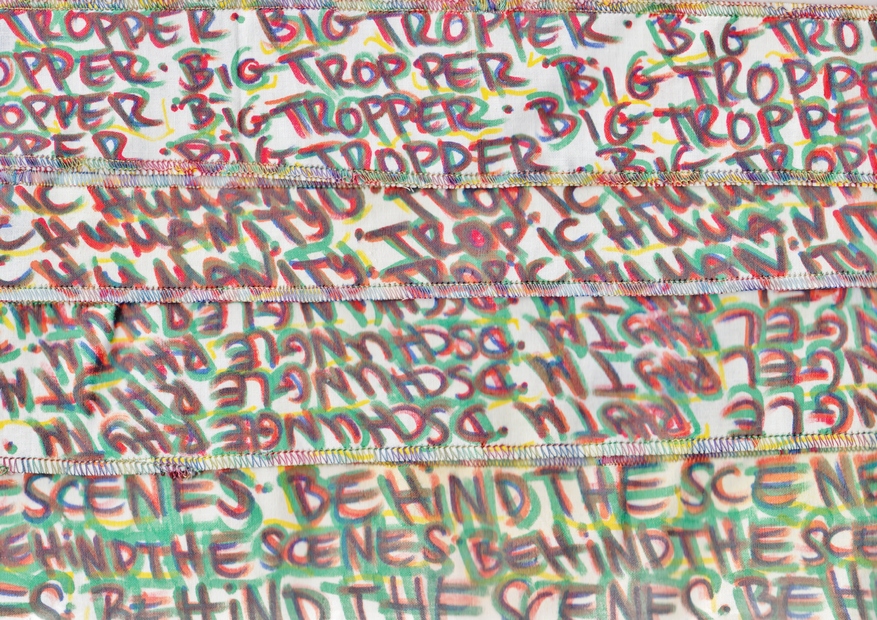 TROPPER · BIG TROPPER · BIG TRO
OPPER · BIG TROPPER BIG TROPPE
OPPER · BIG TROPPER · BIG TROPPE
PPER · BIG TROPPER BIG TROP
IC HUMANITY · TROPIC HUMAN
C HUMANITY · TROPIC HUMANIT
C HUMANITY · TROPIC HUMANITY
DSCHUNGEL
DSCHUNGEL
DSCHUNGEL
E SCENES · BEHIND THE SCENE
EHIND THE SCENES · BEHIND THE SCE
ES · BEHIND THE SCENES · BEHI